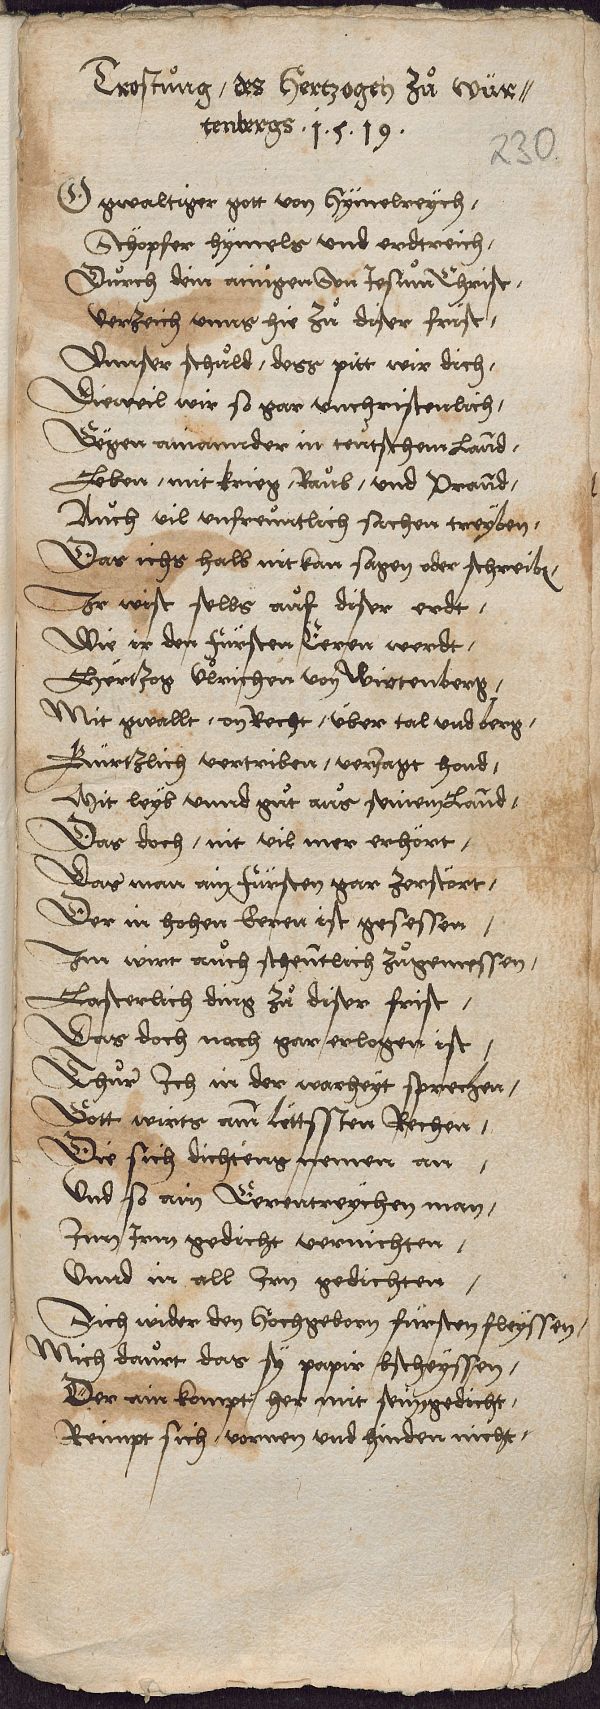 Trostůng / des Hertzogen zů Wür//
tenbergs . 1 . 5 . 19 .
230
O gwaltiger gott von Hymelreych /
Schöpfer hymels und erdtreich /
Důrch dein ainigen Son Jesům Christ /
Verzeich unns hie zů diser frist /
Unnser schůld / dess pitt wir dich /
Dieweil wir so gar unchristenlich /
Gegen ainannder in teutschem Lannd /
Leben / mit krieg / Raůb / und Prannd /
Aůch vil unfreuntlich sachen treyben /
Das ichs halb nit kan sagen oder schreiben /
Ir wist selbs aůf diser erdt /
Wie ir den Fürsten Eeren werdt /
Hertzog Ůlrichen von Wirtenberg /
Mit gwallt / on Recht / über tal und berg /
Kürtzlich vertriben / verjagt hond /
Mit leyb unnd gůt aůs seinem Lannd /
Das doch / nit vil mer erhört /
Das man ain Fürsten gar zerstört /
Der in hohen Eeren ist gesessen /
Im wirt aůch schentlich zůgemessen /
Lasterlich ding zů diser frist /
Das doch noch gar erlogen ist /
Thůr Ich in der warheyt sprechen /
Gott wirts am lettssten Rechen /
Die sich dichtens nemen an /
Und so ain Eerentreychen man /
Inn Irm gedicht vernichten /
Unnd in all Irn gedichten /
Sich wider den Hochgeborn fürsten fleyssen /
Mich daůrt das sy papir bscheyssen /
Der ain kompt her mit seim gedicht /
Reimpt sich / vornen und hinden nicht /